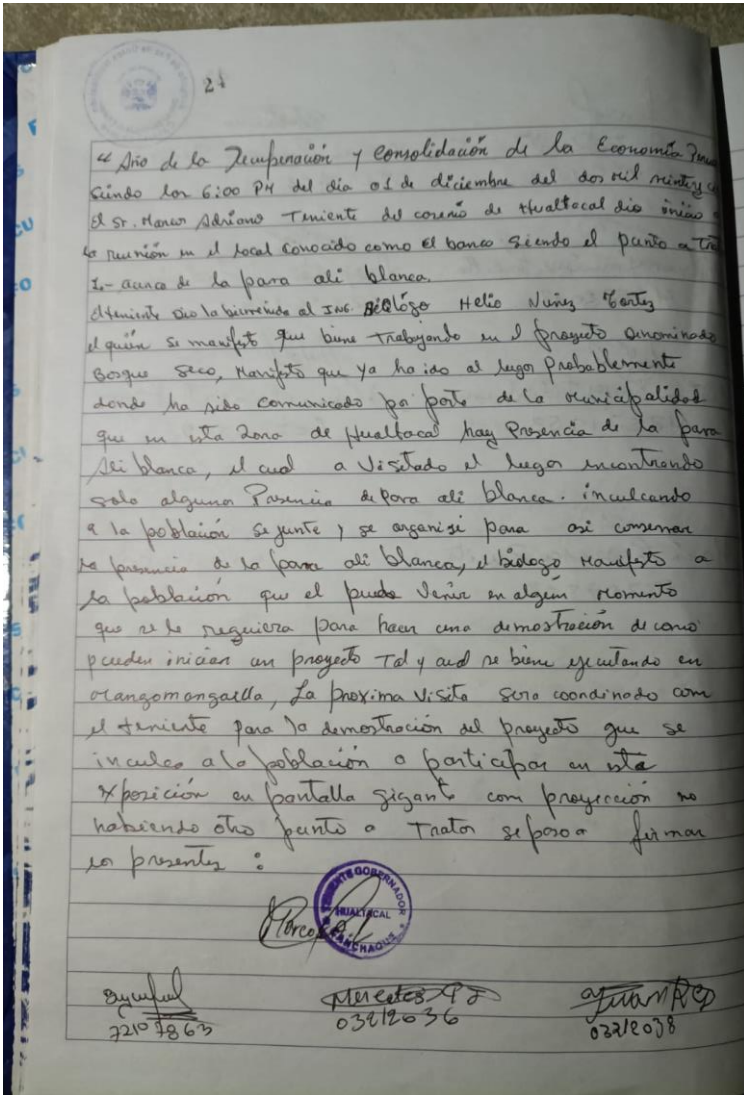 27
“ Año de la Recuperación y Consolidación de la Economía Perua
siendo las 6:00 PM del día 01 de diciembre del dos mil veinty c
El Sr. Marco Adriano Teniente del caserío de Hualtacal dio inicio a
la reunión en el local conocido como El banco siendo el punto a Tra
1.- acerca de la pava ali blanca.
El teniente dio la bienvenida al ING. BIOLógo Helio Nuñez Cortez
el quién se manifesto que biene Trabajando en el proyecto denominado
Bosque Seco, Manifesto que ya ha ido al lugar Probablemente
donde ha sido comunicado por parte de la municipalidad
que en esta zona de Hualtacal hay Presencia de la pava
Ali blanca, el cual a Visitado el lugar encontrando
solo alguna Presencia de Pava ali blanca. inculcando
a la población se junte y se organise para asi conservar
la presencia de la pava ali blanca, el biólogo Manifesto a
la población que el puede Venir en algún Momento
que se le requiera para hacer una demostración de como
pueden iniciar un proyecto Tal y cual se biene ejecutando en
Mangomanguilla, La proxima Visita sera coordinado con
el teniente para la demostración del proyecto que se
inculca a la población a participar en esta
exposición en pantalla gigante com proyección no
habiendo otro punto a Tratar se paso a firmar
los presentes :
TENIENTE GOBERNADOR
HUALTACAL
CANCHAQUE
Marco
72107863
Mercedes
03212036
Juan
03212038